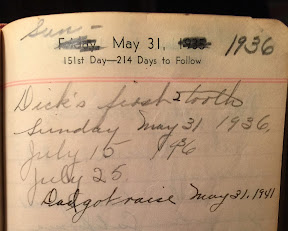 Sun— May 31, 1936
151st Day—214 Days to Follow
Dick's first 2 tooth
Sunday May 31 1936,
July 15 1936
July 25.
Dad got raise May 31, 1941